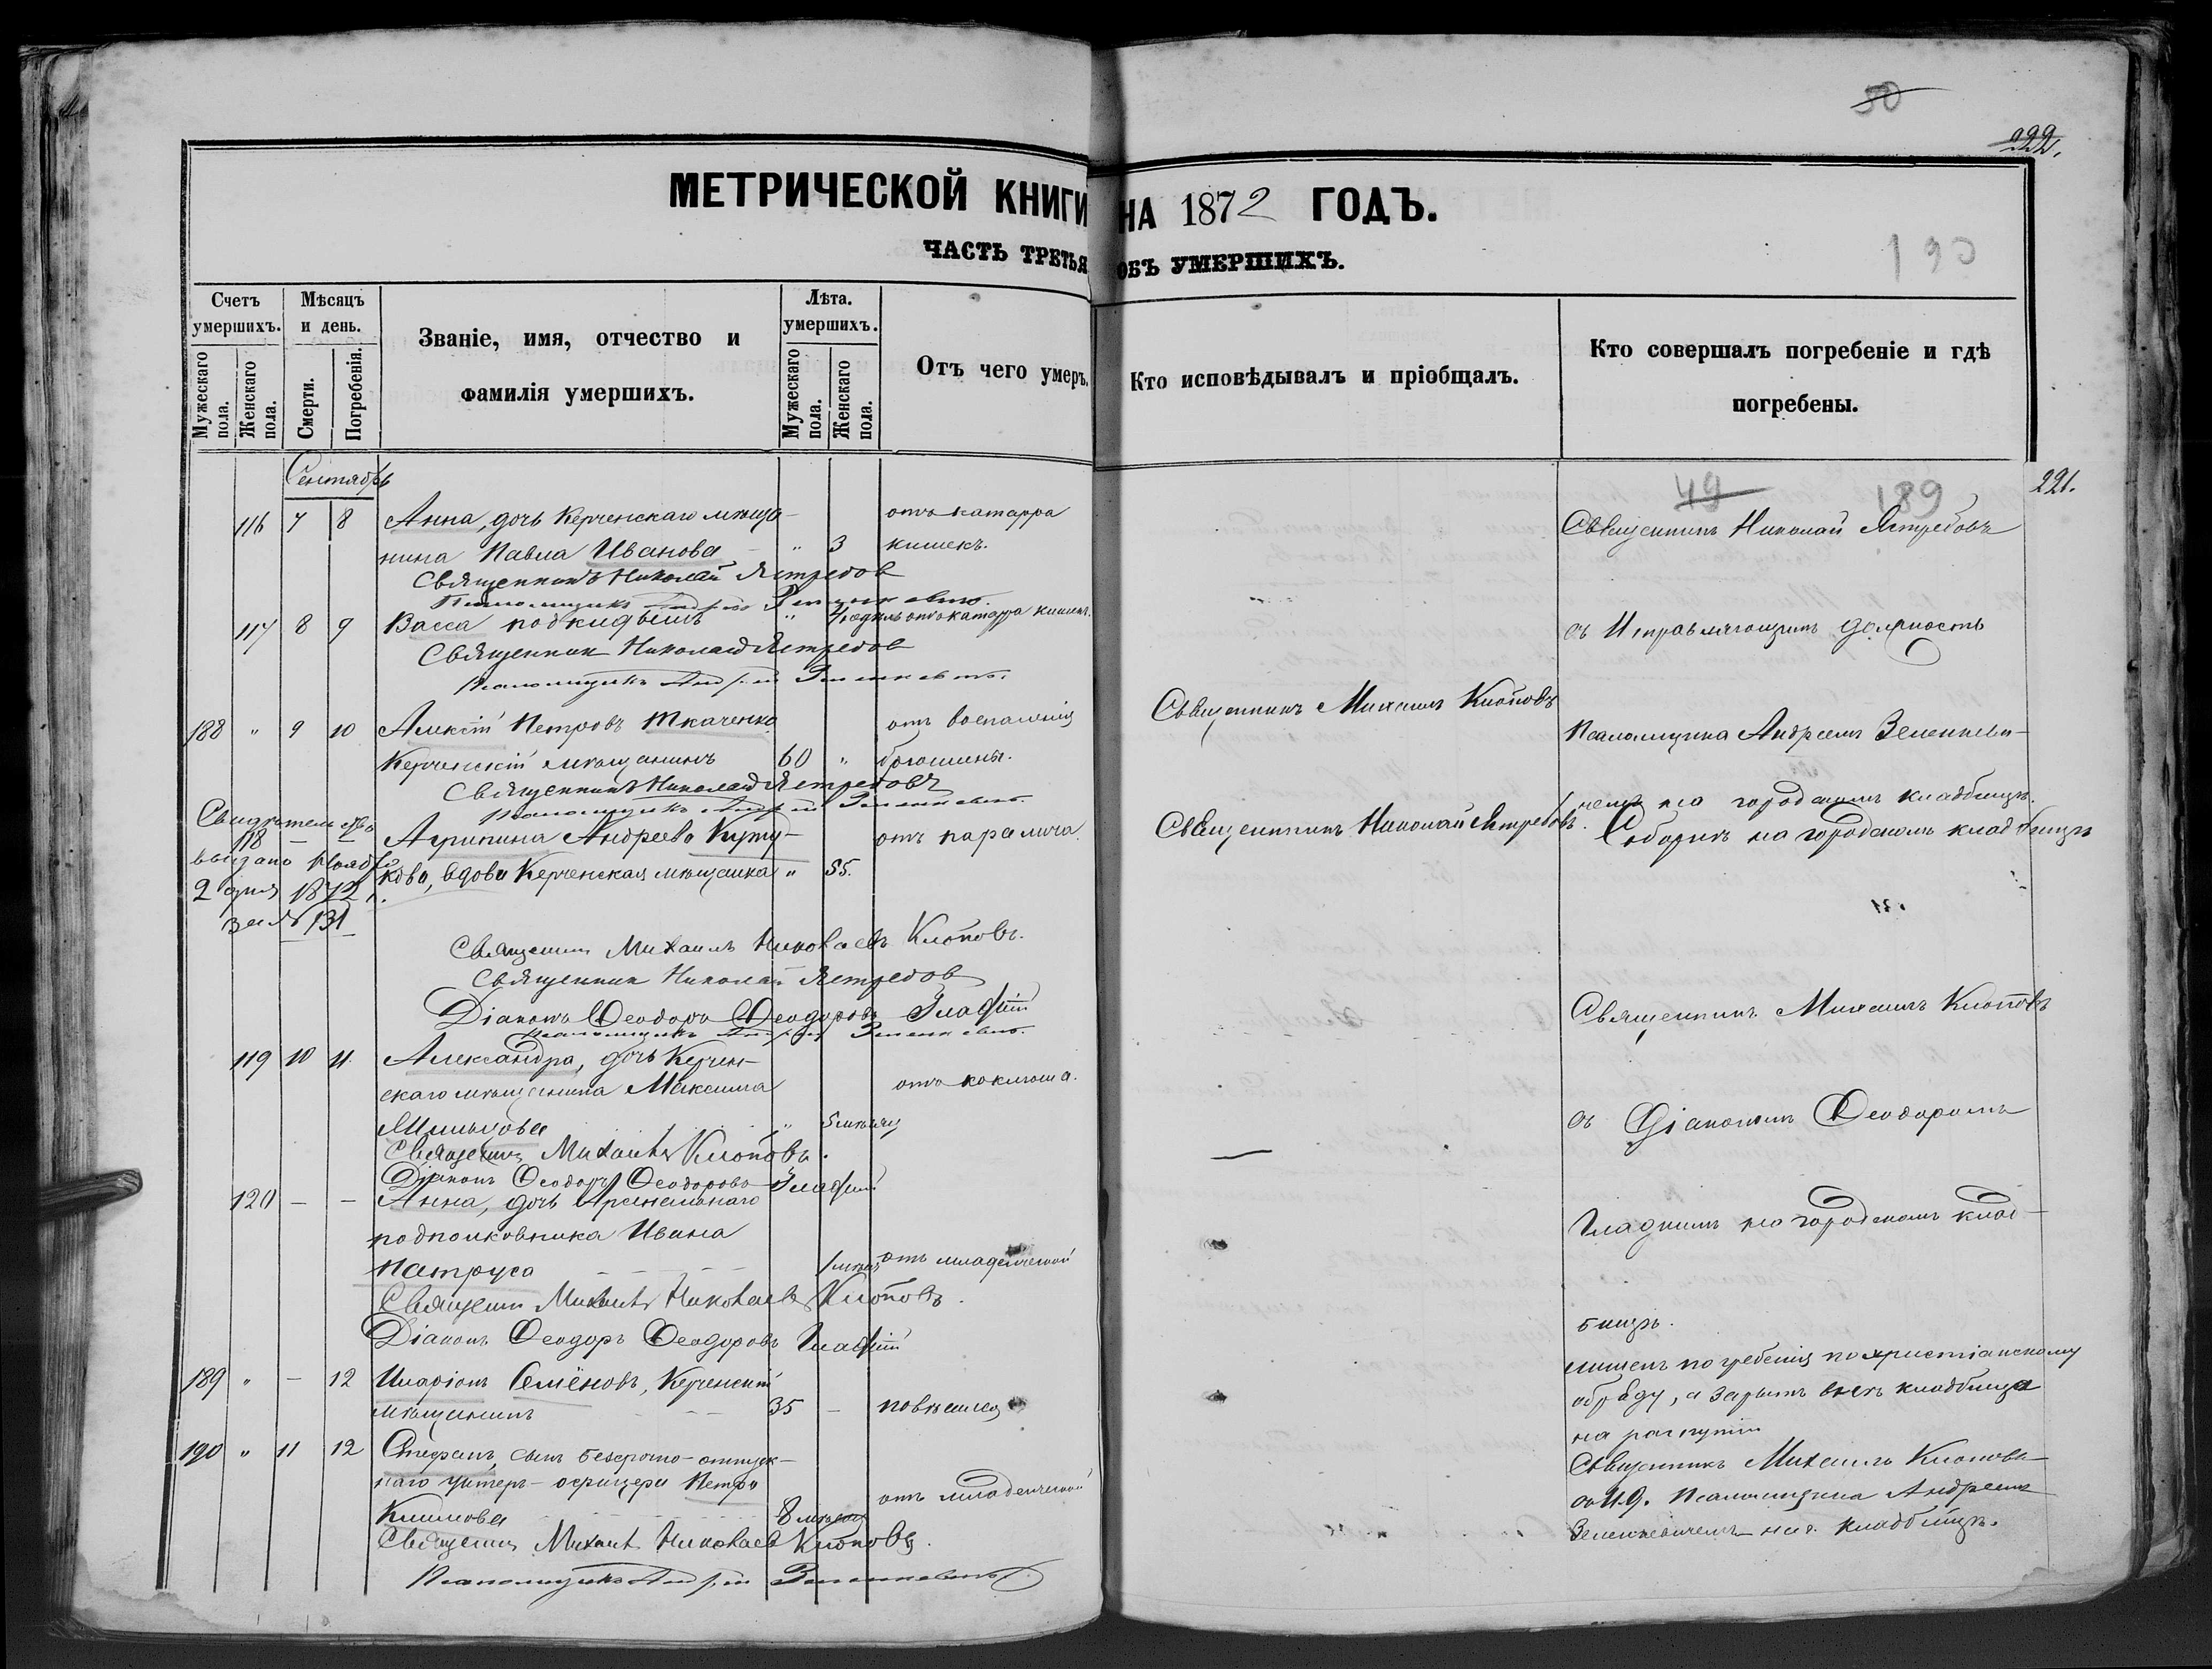 50
222.
МЕТРИЧЕСКОЙ КНИГИ НА 1872 ГОДЪ.
190
ЧАСТЬ ТРЕТЬЯ ОБЪ УМЕРШИХЪ.
Счетъ умершихъ.
Мужескаго пола.
Женскаго пола.
Мѣсяцъ и день.
Смерти.
Погребенія.
Званіе, имя, отчество и
фамилія умершихъ.
Лѣта умершихъ.
Мужескаго пола.
Женскаго пола.
Отъ чего умеръ.
Кто исповѣдывалъ и пріобщалъ.
Кто совершалъ погребеніе и гдѣ
погребены.
Сентябрь
49 189 221.
116 7 8 Анна, дочь Керченскаго мѣща- отъ катарра
нина Павла Иванова " 3 кишекъ.
Священникъ Николай Ястребовъ
Священникъ Николай Ястребов
Псаломщикъ Андрей Зеленкевичъ.
117 8 9 Васса подкидышъ " 4 недѣль отъ катарра кишекъ.
съ Исправляющимъ должность
Священник Николай Ястребов
Псаломщикъ Андрей Зеленкевичъ.
188 " 9 10 Алексѣй Петровъ Ткаченко отъ воспаленія
Священникъ Михаилъ Клоповъ
Псаломщика Андреемъ Зеленкеви-
Керченскій мѣщанинъ 60 " брюшины.
Священникъ Николай Ястребовъ
Псаломщикъ Андрей Зеленкевичъ.
чемъ на городскомъ кладбищѣ.
Свидѣтельство
118 — — Агрипина Андреева Куту- отъ паралича.
Священникъ Николай Ястребовъ.
Соборнѣ на городскомъ кладбищѣ
выдано Ноября
кова, вдова Керченская мѣщанка " 55.
2 дня 1872 г.
за № 131
Священникъ Михаилъ Николаевъ Клоповъ.
Священник Николай Ястребов
Діаконъ Ѳеодоръ Ѳеодоровъ Гладкій
Псаломщикъ Андрей Зеленкевичъ.
Священникъ Михаилъ Клоповъ
119 10 11 Александра, дочь Керчен-
скаго мѣщанина Максима отъ коклюша.
" 5 мѣсяц
съ Діакономъ Ѳеодоромъ
Священникъ Михаилъ Клоповъ.
Діаконъ Ѳеодоръ Ѳеодоровъ Гладкій
120 — — Анна, дочь Арсенальнаго
подполковника Ивана
Гладкимъ на городскомъ клад-
Патруса 1 мѣсяц отъ младенческой
Священник Михаилъ Николаевъ Клоповъ.
бищѣ.
Діаконъ Ѳеодоръ Ѳеодоровъ Гладкій
189 " — 12 Иларіонъ Семёновъ, Керченскій
лишенъ погребенія по христіанскому
мѣщанинъ 35 — повѣсился
обряду, а зарытъ внѣ кладбища
на распутіи
190 " 11 12 Стефанъ, сынъ безсрочно-отпуск-
Священникъ Михаилъ Клоповъ
наго унтеръ-офицера Петра отъ младенческой
съ И.д. Псаломщика Андреемъ
Климова 8 мѣсяц
Зеленкевичемъ на г. кладбищѣ.
Священникъ Михаилъ Николаевъ Клоповъ.
Псаломщикъ Андрей Зеленкевичъ